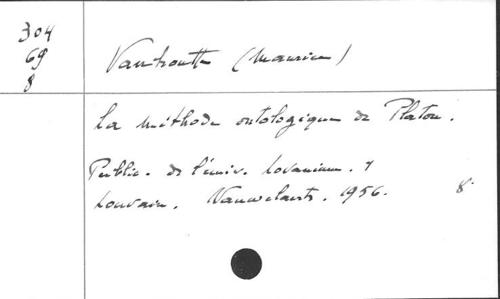 304
69
8
Vanhoutte (Maurice)
La méthode ontologique de Platon.
Public. de l'univ. Lovanium. 4
Louvain. Nauwelaerts. 1956. 8°